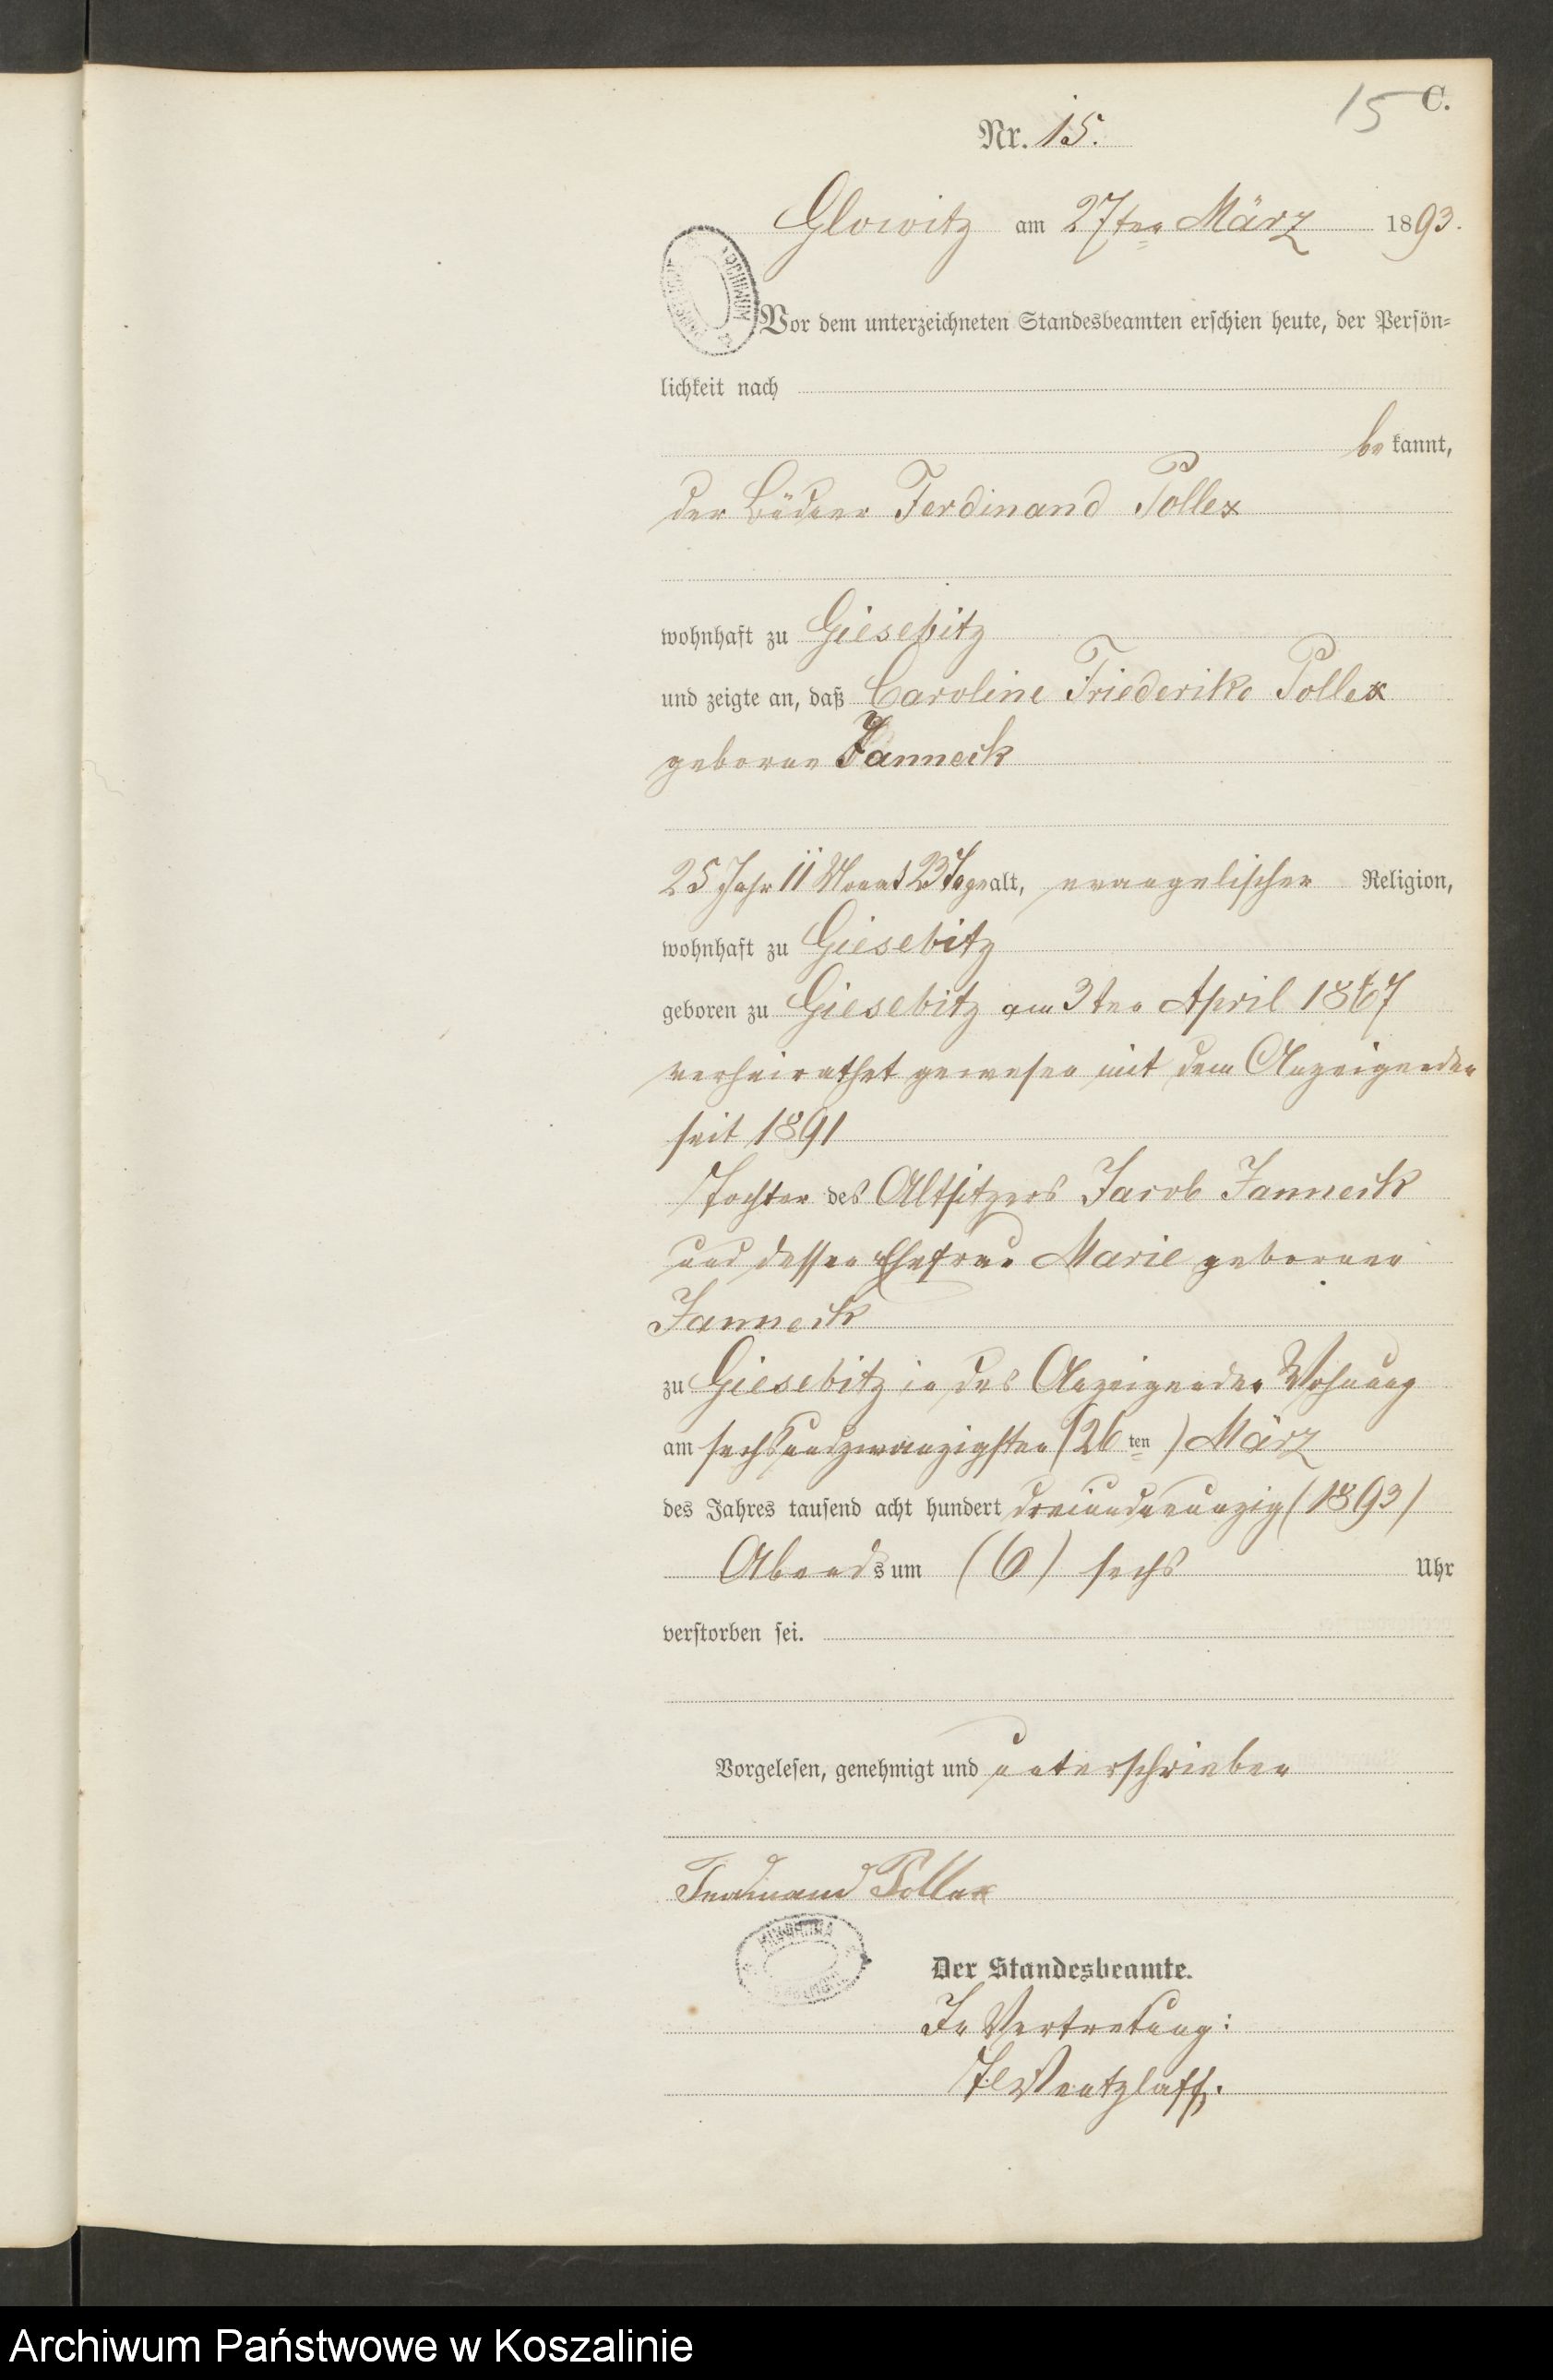 15 C.
Nr. 15.
Glowitz am 27ten März 1893.
Vor dem unterzeichneten Standesbeamten erschien heute, der Persön=
lichkeit nach
be kannt,
der Büdner Ferdinand Pollex
wohnhaft zu Giesebitz
und zeigte an, daß Caroline Friederike Pollex
geborne Janneck
25 Jahr 11 Monat 23 Tage alt, evangelischer Religion,
wohnhaft zu Giesebitz
geboren zu Giesebitz am 3ten April 1867
verheirathet gewesen mit dem Anzeigenden
seit 1891
Tochter des Altsitzers Jacob Janneck
und dessen Ehefrau Marie gebornen
Janneck
zu Giesebitz in des Anzeigenden Wohnung
am sechsundzwanzigsten (26ten) März
des Jahres tausend acht hundert dreiundneunzig (1893)
Abends um (6) sechs Uhr
verstorben sei.
Vorgelesen, genehmigt und unterschrieben
Ferdinand Pollex
Der Standesbeamte.
In Vertretung:
Wentzlaff.
Archiwum Państwowe w Koszalinie